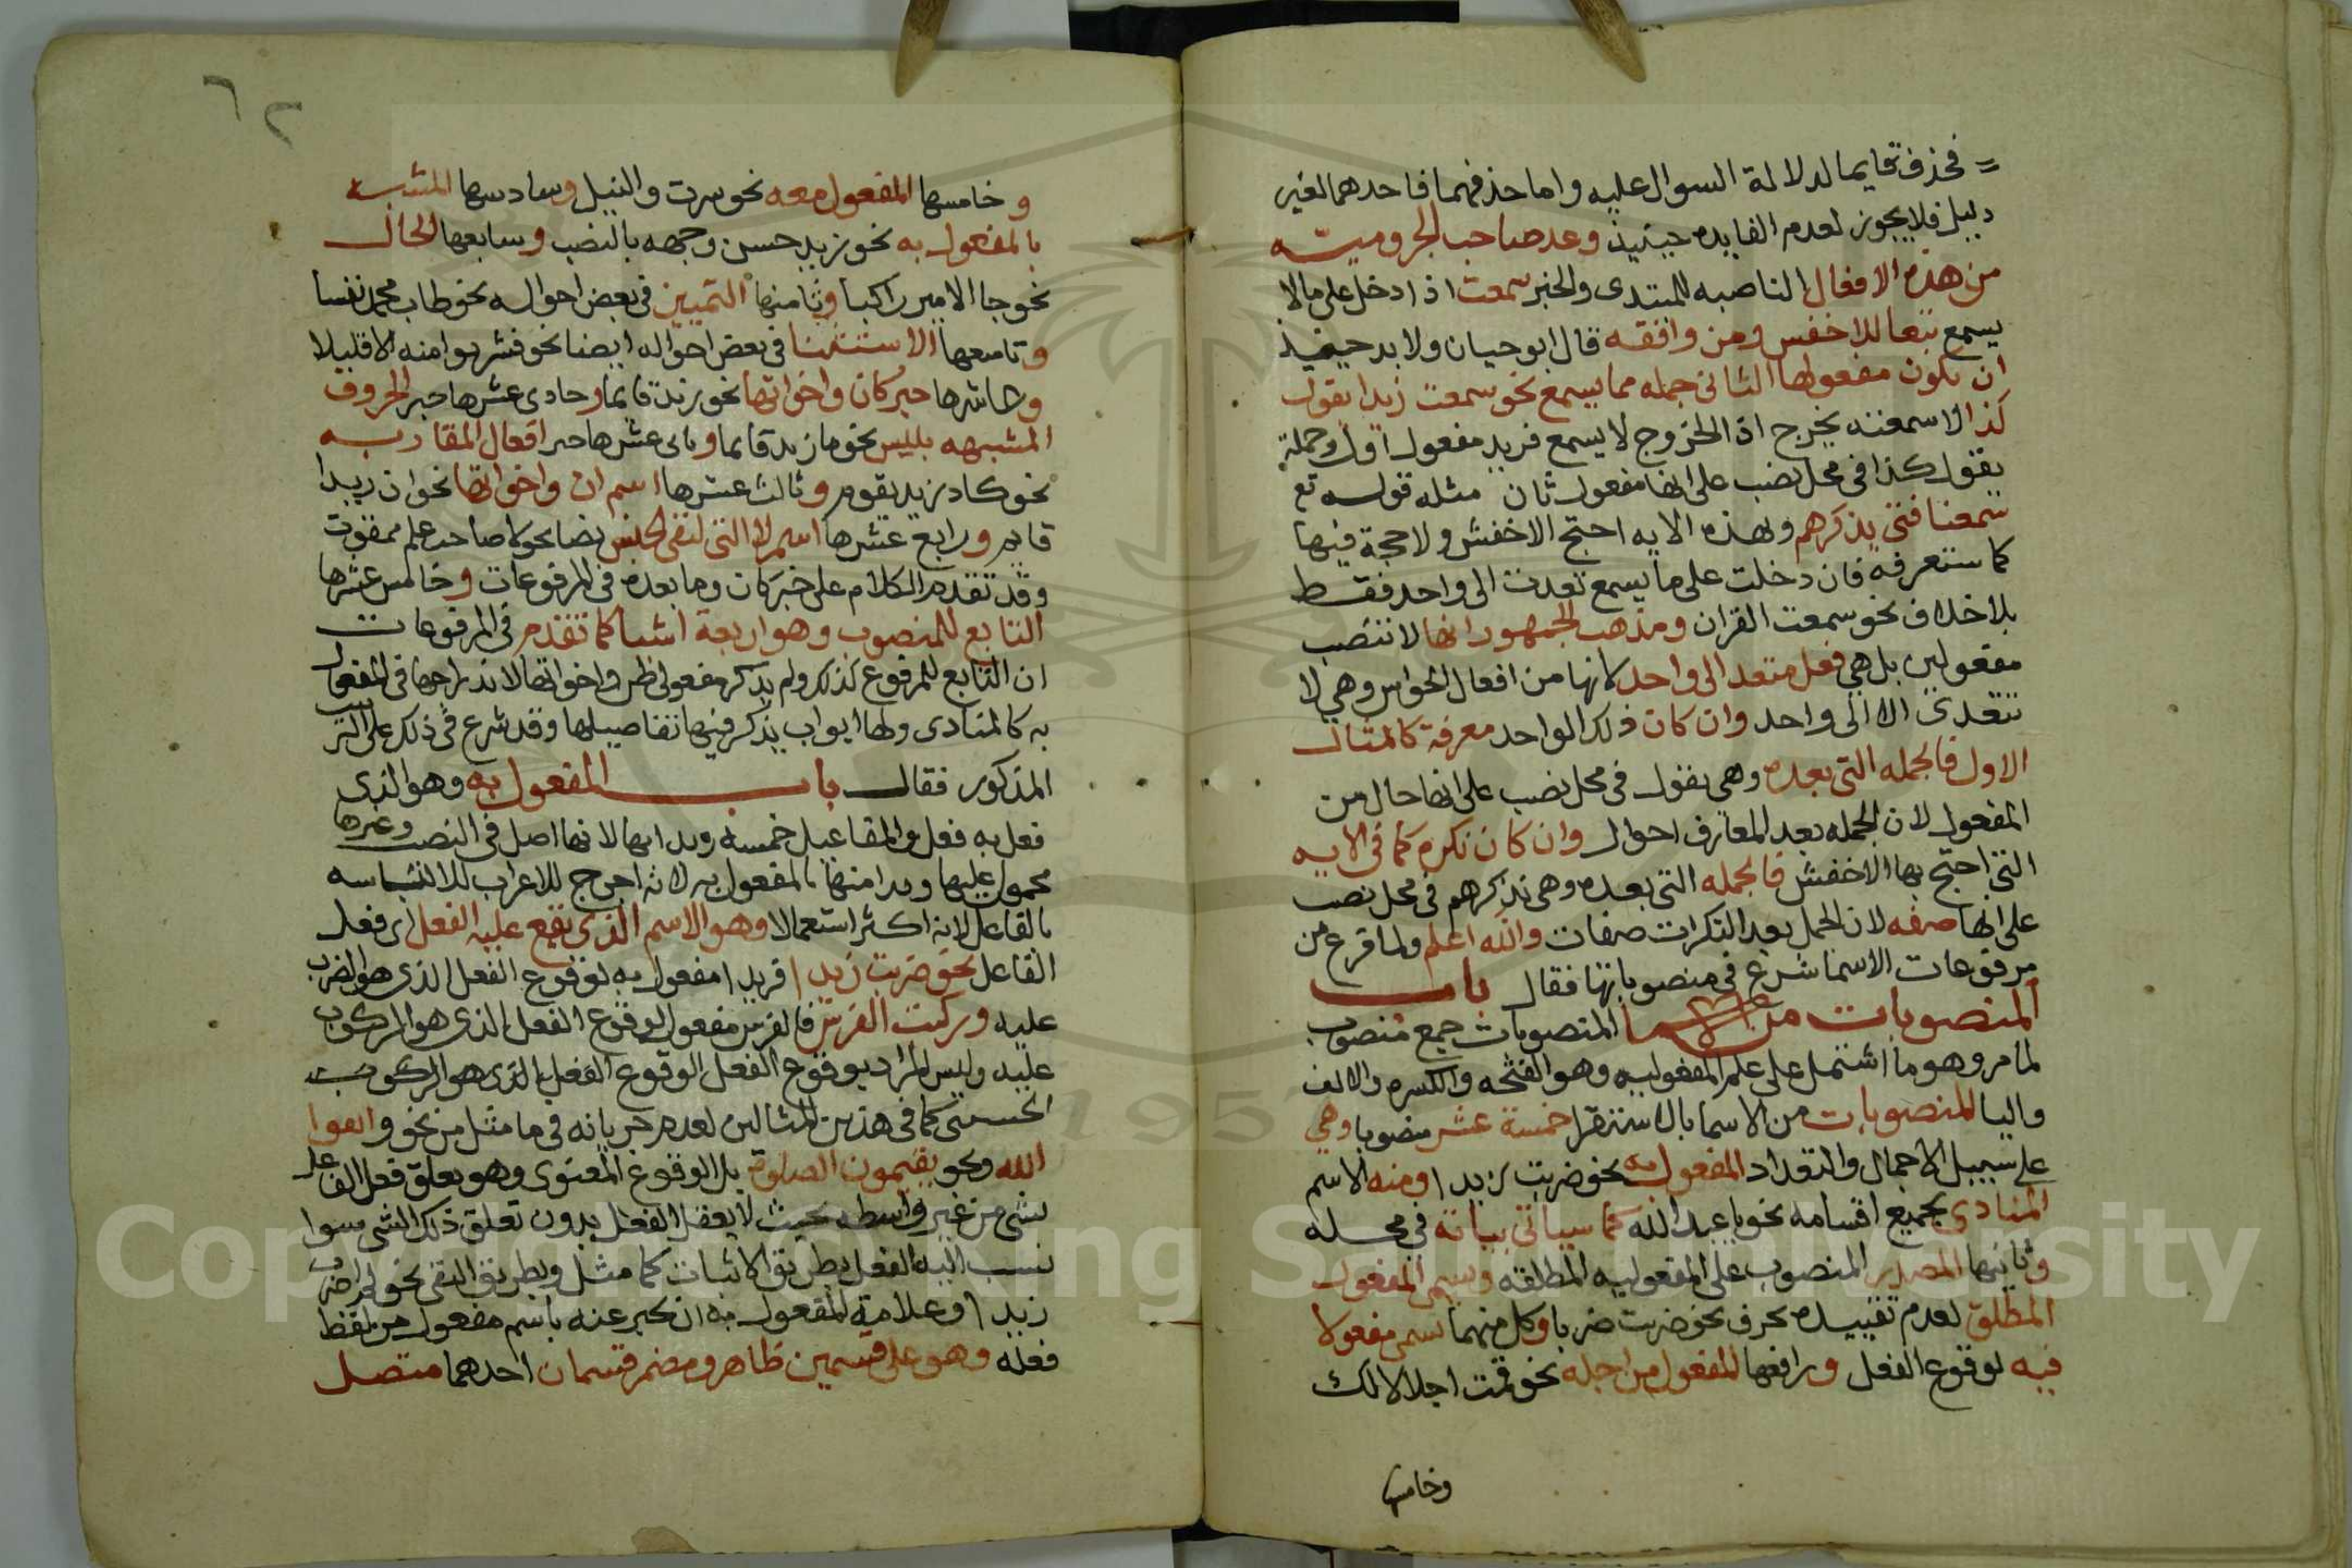 فحذف قايما لدلالة السوال عليه واما حذفهما فاحدهما لغير
دليل فلا يجوز لعدم الفايده حينيذ وعد صاحب الجروميه
من هذه الافعال الناصبه للمبتدى والخبر سمعت اذا دخل على مالا
يسمع تبعا للاخفس ومن وافقه قال ابو حيان ولا بد حينيذ
ان يكون مفعولها الثانى جمله مما يسمع نحو سمعت زيدا يقول
كذا لا سمعته يخرج اذ الخروج لا يسمع فزيد مفعول اول وجملة
يقول كذا فى محل نصب على انها مفعول ثان مثله قوله تع
سمعنا فتى يذكرهم وبهذه الايه احتج الاخفش ولا حجة فيها
كما ستعرفه فان دخلت على ما يسمع تعدت الى واحد فقط
بلا خلاف نحو سمعت القران ومذهب الجمهور انها لا تنصب
مفعولين بل هي فعل متعد الى واحد لانها من افعال الحواس وهي لا
تتعدى الا الى واحد وان كان ذلك الواحد معرفة كالمثال
الاول فالجمله التى بعده وهى يقول فى محل نصب على انها حال من
المفعول لان الجمله بعد المعارف احوال وان كان نكره كما فى الايه
التى احتج بها الاخفش فالجمله التى بعده وهى يذكرهم فى محل نصب
على انها صفه لان الجمل بعد النكرات صفات والله اعلم ولما فرغ من
مرفوعات الاسما شرع فى منصوباتها فقال باب
المنصوبات من الاسما المنصوبات جمع منصوب
لما مر وهو ما اشتمل على علم المفعوليه وهو الفتحه والكسره والالف
واليا المنصوبات من الاسما بالاستقرا خمسة عشر منصوبا وهي
على سبيل الاجمال والتعداد المفعول به نحو ضربت زيدا ومنه الاسم
المنادى بجميع اقسامه نحو يا عبد الله كما سياتى بيانه فى محله
وثانيها المصدر المنصوب على المفعوليه المطلقه وسمى المفعول
المطلق لعدم تقييده بحرف نحو ضربت ضربا وكل منهما سمى مفعولا
فيه لوقوع الفعل ورابعها المفعول من اجله نحو قمت اجلالا لك
وخامسها
٦٢
وخامسها المفعول معه نحو سرت والنيل وسادسها المشبه
بالمفعول به نحو زيد حسن وجهه بالنصب وسابعها الحال
نحو جا الامير راكبا وثامنها التمييز فى بعض احواله نحو طاب محمد نفسا
وتاسعها الاستثنا فى بعض احواله ايضا نحو فشربوا منه الا قليلا
وعاشرها خبر كان واخواتها نحو زيد قايما وحادى عشرها خبر الحروف
المشبهه بليس نحو ما زيد قايما وثانى عشرها خبر افعال المقاربه
نحو كاد زيد يقوم وثالث عشرها اسم ان واخواتها نحو ان زيدا
قايم ورابع عشرها اسم لا التى لنفى الجنس نصا نحو لا صاحب علم ممقوت
وقد تقدم الكلام على خبر كان وما بعده فى المرفوعات وخامس عشرها
التابع للمنصوب وهو اربعة اشيا كما تقدم فى المرفوعات
ان التابع للمرفوع كذلك ولم يذكر مفعولى ظن واخواتها لاندراجها فى المفعول
به كالمنادى ولها ابواب يذكر فيها تفاصيلها وقد شرع فى ذلك على الترتيب
المذكور فقال باب المفعول به وهو الذى
فعل به فعل والمفاعيل خمسة وبدا بها لانها اصل فى النصب وغيرها
محمول عليها وبدا منها بالمفعول به لانه احوج للاعراب لالتباسه
بالفاعل لانه اكثر استعمالا وهو الاسم الذى يقع عليه الفعل اى فعل
الفاعل نحو ضربت زيدا فزيدا مفعول به لوقوع الفعل الذى هو الضرب
عليه وركبت الفرس فالفرس مفعول لوقوع الفعل الذى هو الركوب
عليه وليس المراد بوقوع الفعل الوقوع الفعلى الذى هو الركوب
الحسى كما فى هذين المثالين لعدم جريانه فى ما مثل من نحو واتقوا
الله ونحو يقيمون الصلوة بل الوقوع المعنوى وهو تعلق فعل الفاعل
بشى من غير واسطه بحيث لا يعقل الفعل بدون تعلق ذلك الشى سوا
نسب اليه الفعل بطريق الاثبات كما مثل وبطريق النفى نحو لم اضرب
زيدا وعلامة المفعول به ان يخبر عنه باسم مفعول من لفظ
فعله وهو على قسمين ظاهر ومضمر قسمان احدهما متصل
Copyright © King Saud University
1957